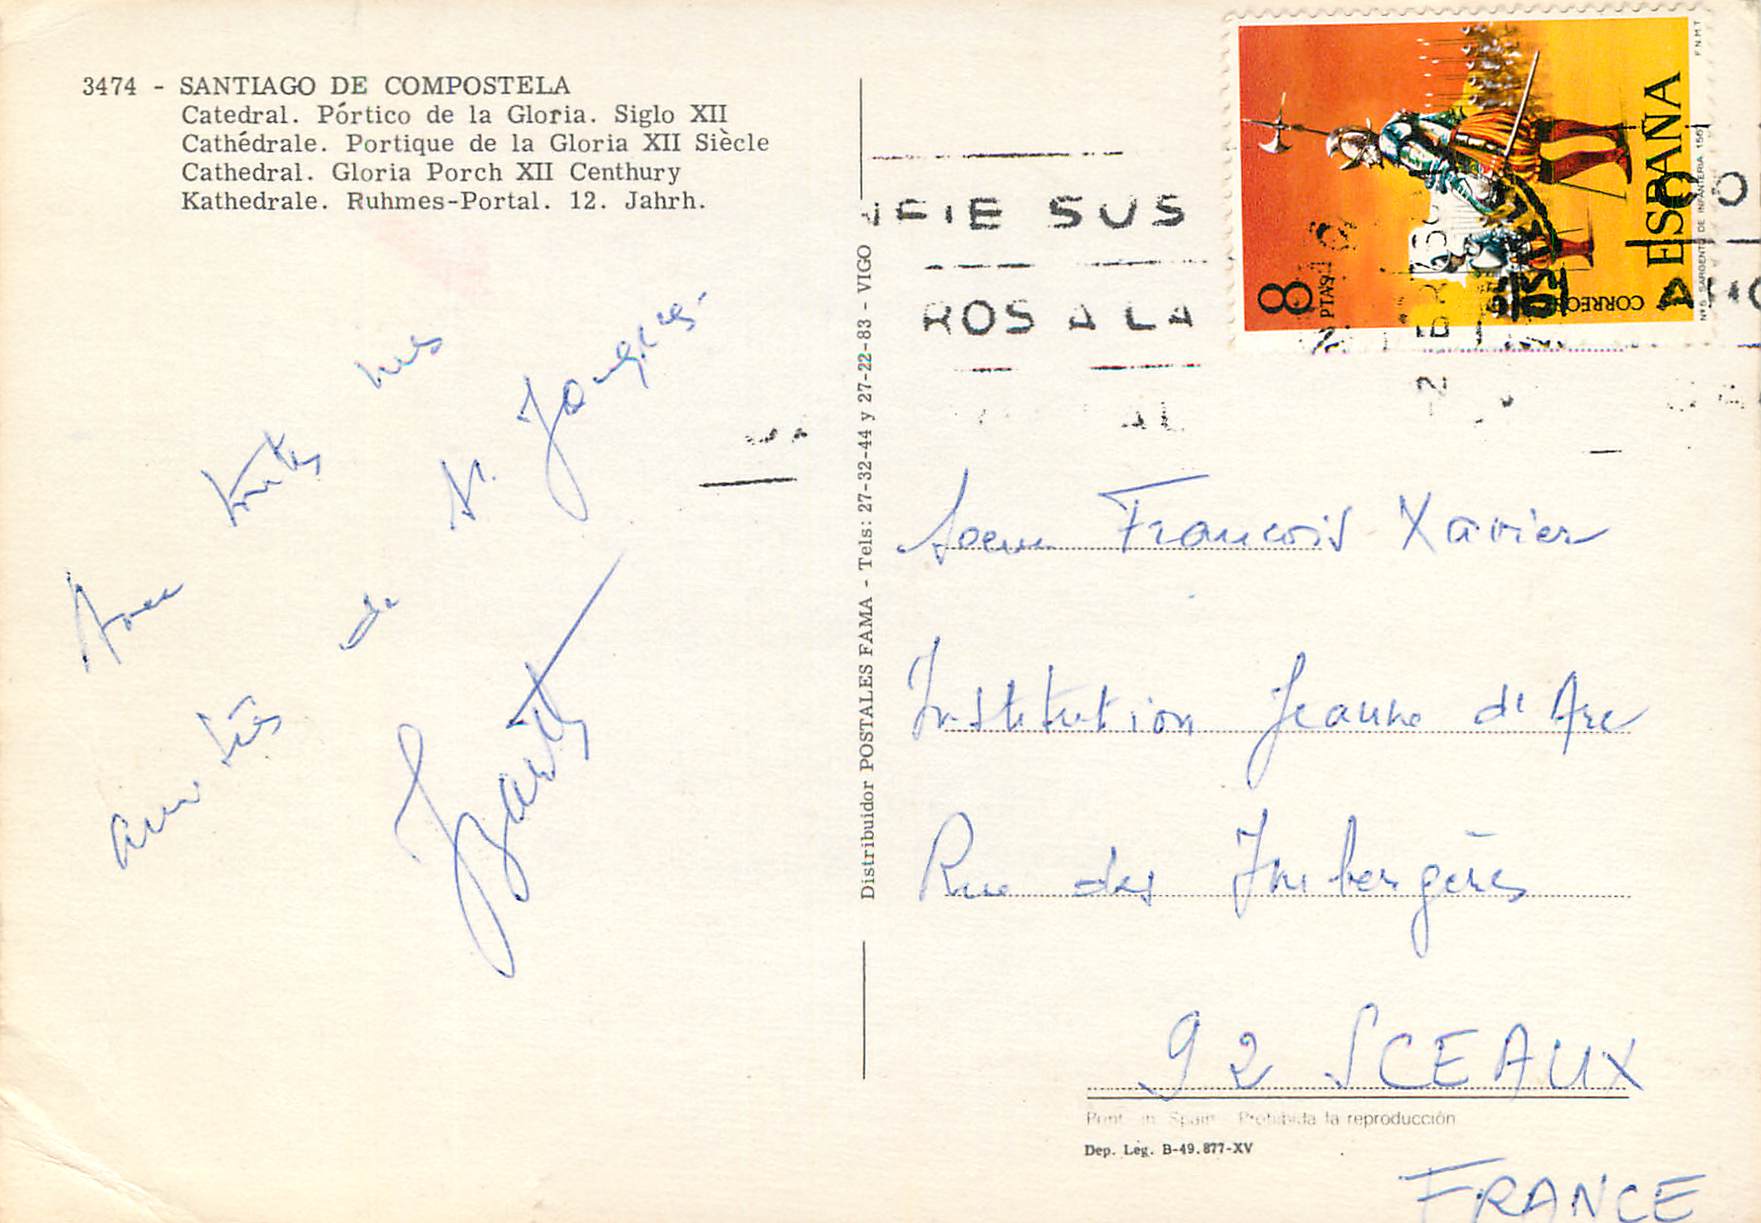 3474 - SANTIAGO DE COMPOSTELA
Catedral. Pórtico de la Gloria. Siglo XII
Cathédrale. Portique de la Gloria XII Siècle
Cathedral. Gloria Porch XII Centhury
Kathedrale. Ruhmes-Portal. 12. Jahrh.
Avec toutes mes
amitiés de St. Jacques.
Distribuidor POSTALES FAMA - Tels: 27-32-44 y 27-22-83 - VIGO
FIE SUS
ROS A LA
ESPAÑA
8 PTAS
CORREOS
Nº 5 SARGENTO DE INFANTERIA 1567
F.N.M.T
Soeur Francois Xavier
Institution Jeanne d'Arc
Rue des Imbergères
92 SCEAUX
Print in Spain Prohibida la reproducción
Dep. Leg. B-49.877-XV
FRANCE